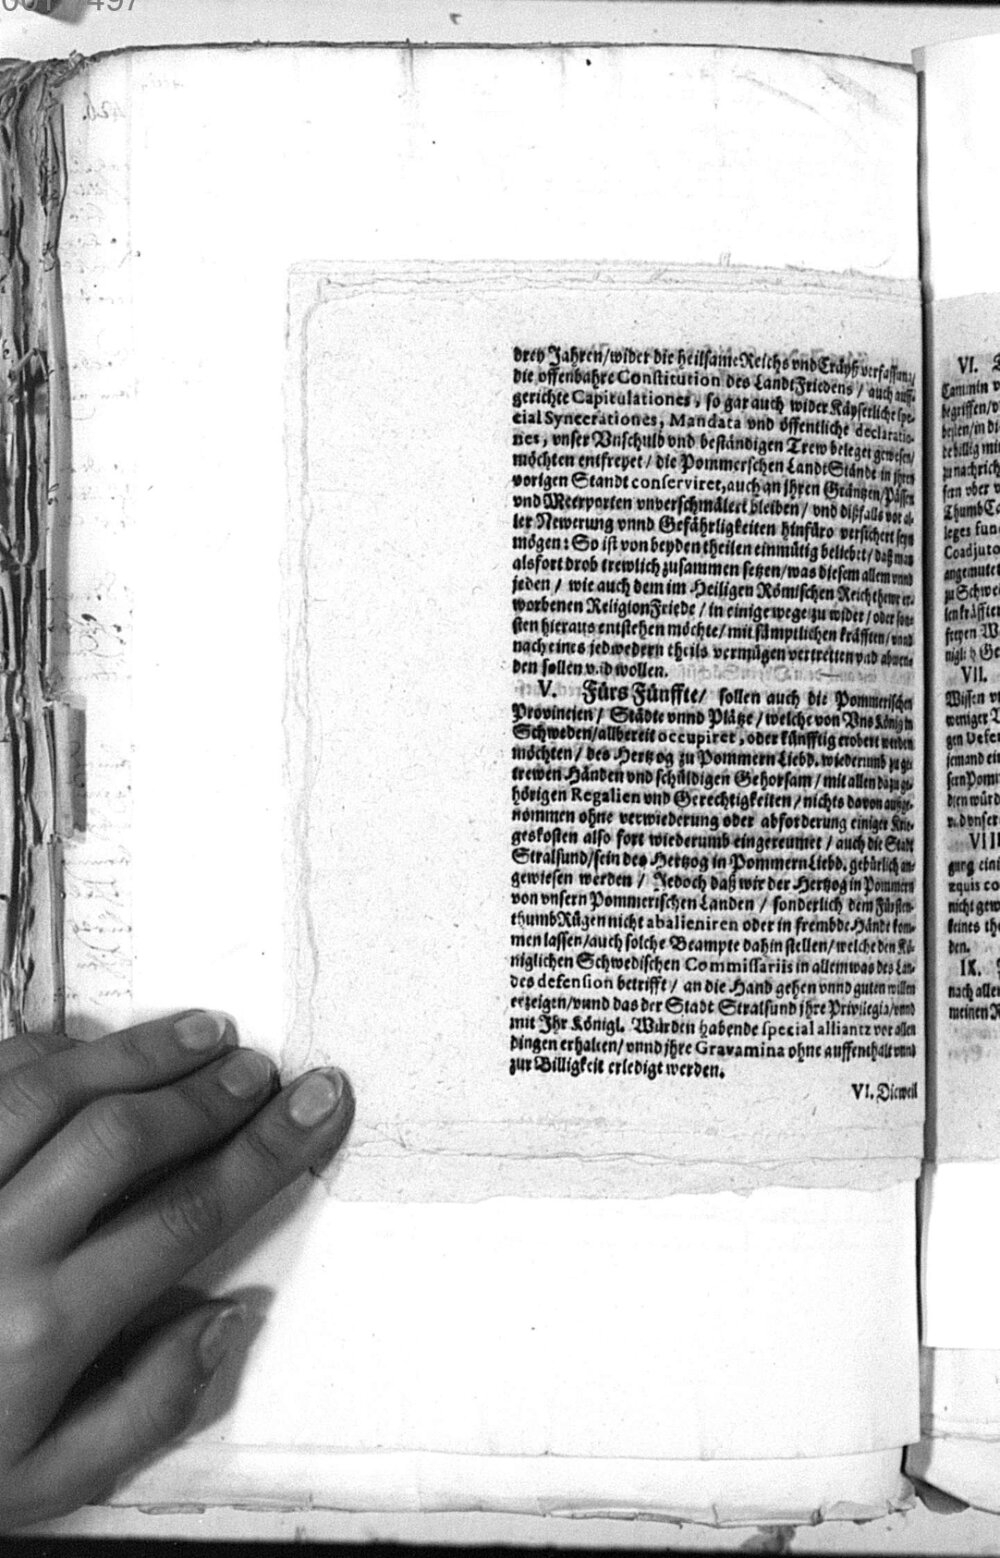 drey Jahren/wider die heilsame Reichs vnd Cräyß verfassung/
die offenbahre Constitution des LandtFriedens / auch auff-
gerichte Capitulationes, so gar auch wider Käyserliche spe-
cial Syncerationes, Mandata vnd öffentliche declaratio-
nes, vnser Vnschuld vnd beständigen Trew beleget gewesen/
möchten entfreyet / die Pommerschen LandtStände in jhren
vorigen Standt conserviret, auch an jhren Gräntzen/Pässen
vnd Meerporten vnverschmälert bleiben / vnd dißfalls vor al-
ler Newerung vnnd Gefährligkeiten hinfüro versichert seyn
mögen: So ist von beyden theilen einmütig beliebet / daß man
alsfort drob trewlich zusammen setzen/was diesem allem vnnd
jeden / wie auch dem im Heiligen Römischen Reich thewr er-
worbenen ReligionFriede / in einige wege zu wider / oder son-
sten hieraus entstehen möchte/ mit sämptlichen kräfften/ vnnd
nach eines jedwedern theils vermügen vertretten vnd abwen-
den sollen vnd wollen.
V. Fürs Fünffte/ sollen auch die Pommerischen
Provincien / Städte vnnd Plätze / welche von Vns König in
Schweden/allbereit occupiret, oder künfftig erobert werden
möchten / des Hertzog zu Pommern Liebd. wiederumb zu ge-
trewen Händen vnd schüldigen Gehorsam / mit allen dazu ge-
hörigen Regalien vnd Gerechtigkeiten / nichts davon außge-
nommen ohne verwiederung oder abforderung einiger Krie-
geskosten also fort wiederumb eingereumet / auch die Stadt
Stralsund/sein des Hertzog in Pommern Liebd. gebürlich an-
gewiesen werden / Jedoch daß wir der Hertzog in Pommern
von vnsern Pommerischen Landen / sonderlich dem Fürsten-
thumb Rügen nicht abalieniren oder in frembde Hände kom-
men lassen/auch solche Beampte dahin stellen/welche den Kö-
niglichen Schwedischen Commissariis in allem was des Lan-
des defension betrifft / an die Hand gehen vnnd guten willen
erzeigen/vnnd das der Stadt Stralsund jhre Privilegia/vnnd
mit Jhr Königl. Würden habende special alliantz vor allen
dingen erhalten/ vnnd jhre Gravamina ohne auffenthalt vnnd
zur Billigkeit erledigt werden.
VI. Dieweil
VI.
Cammin
begriffen/
besten/in
de billig mit
zu nachrich
sern oder
Thumb
leges fun
Coadjuto
angemutet
zu Schwe
len kräfften
freyen
nigli
VII.
Wissen
weniger
gen
jemand ein
sern Pom
dien würd
vnd vnser
VIII
gung eini
æquis co
nicht gew
keines the
den.
IX.
nach alle
meinen